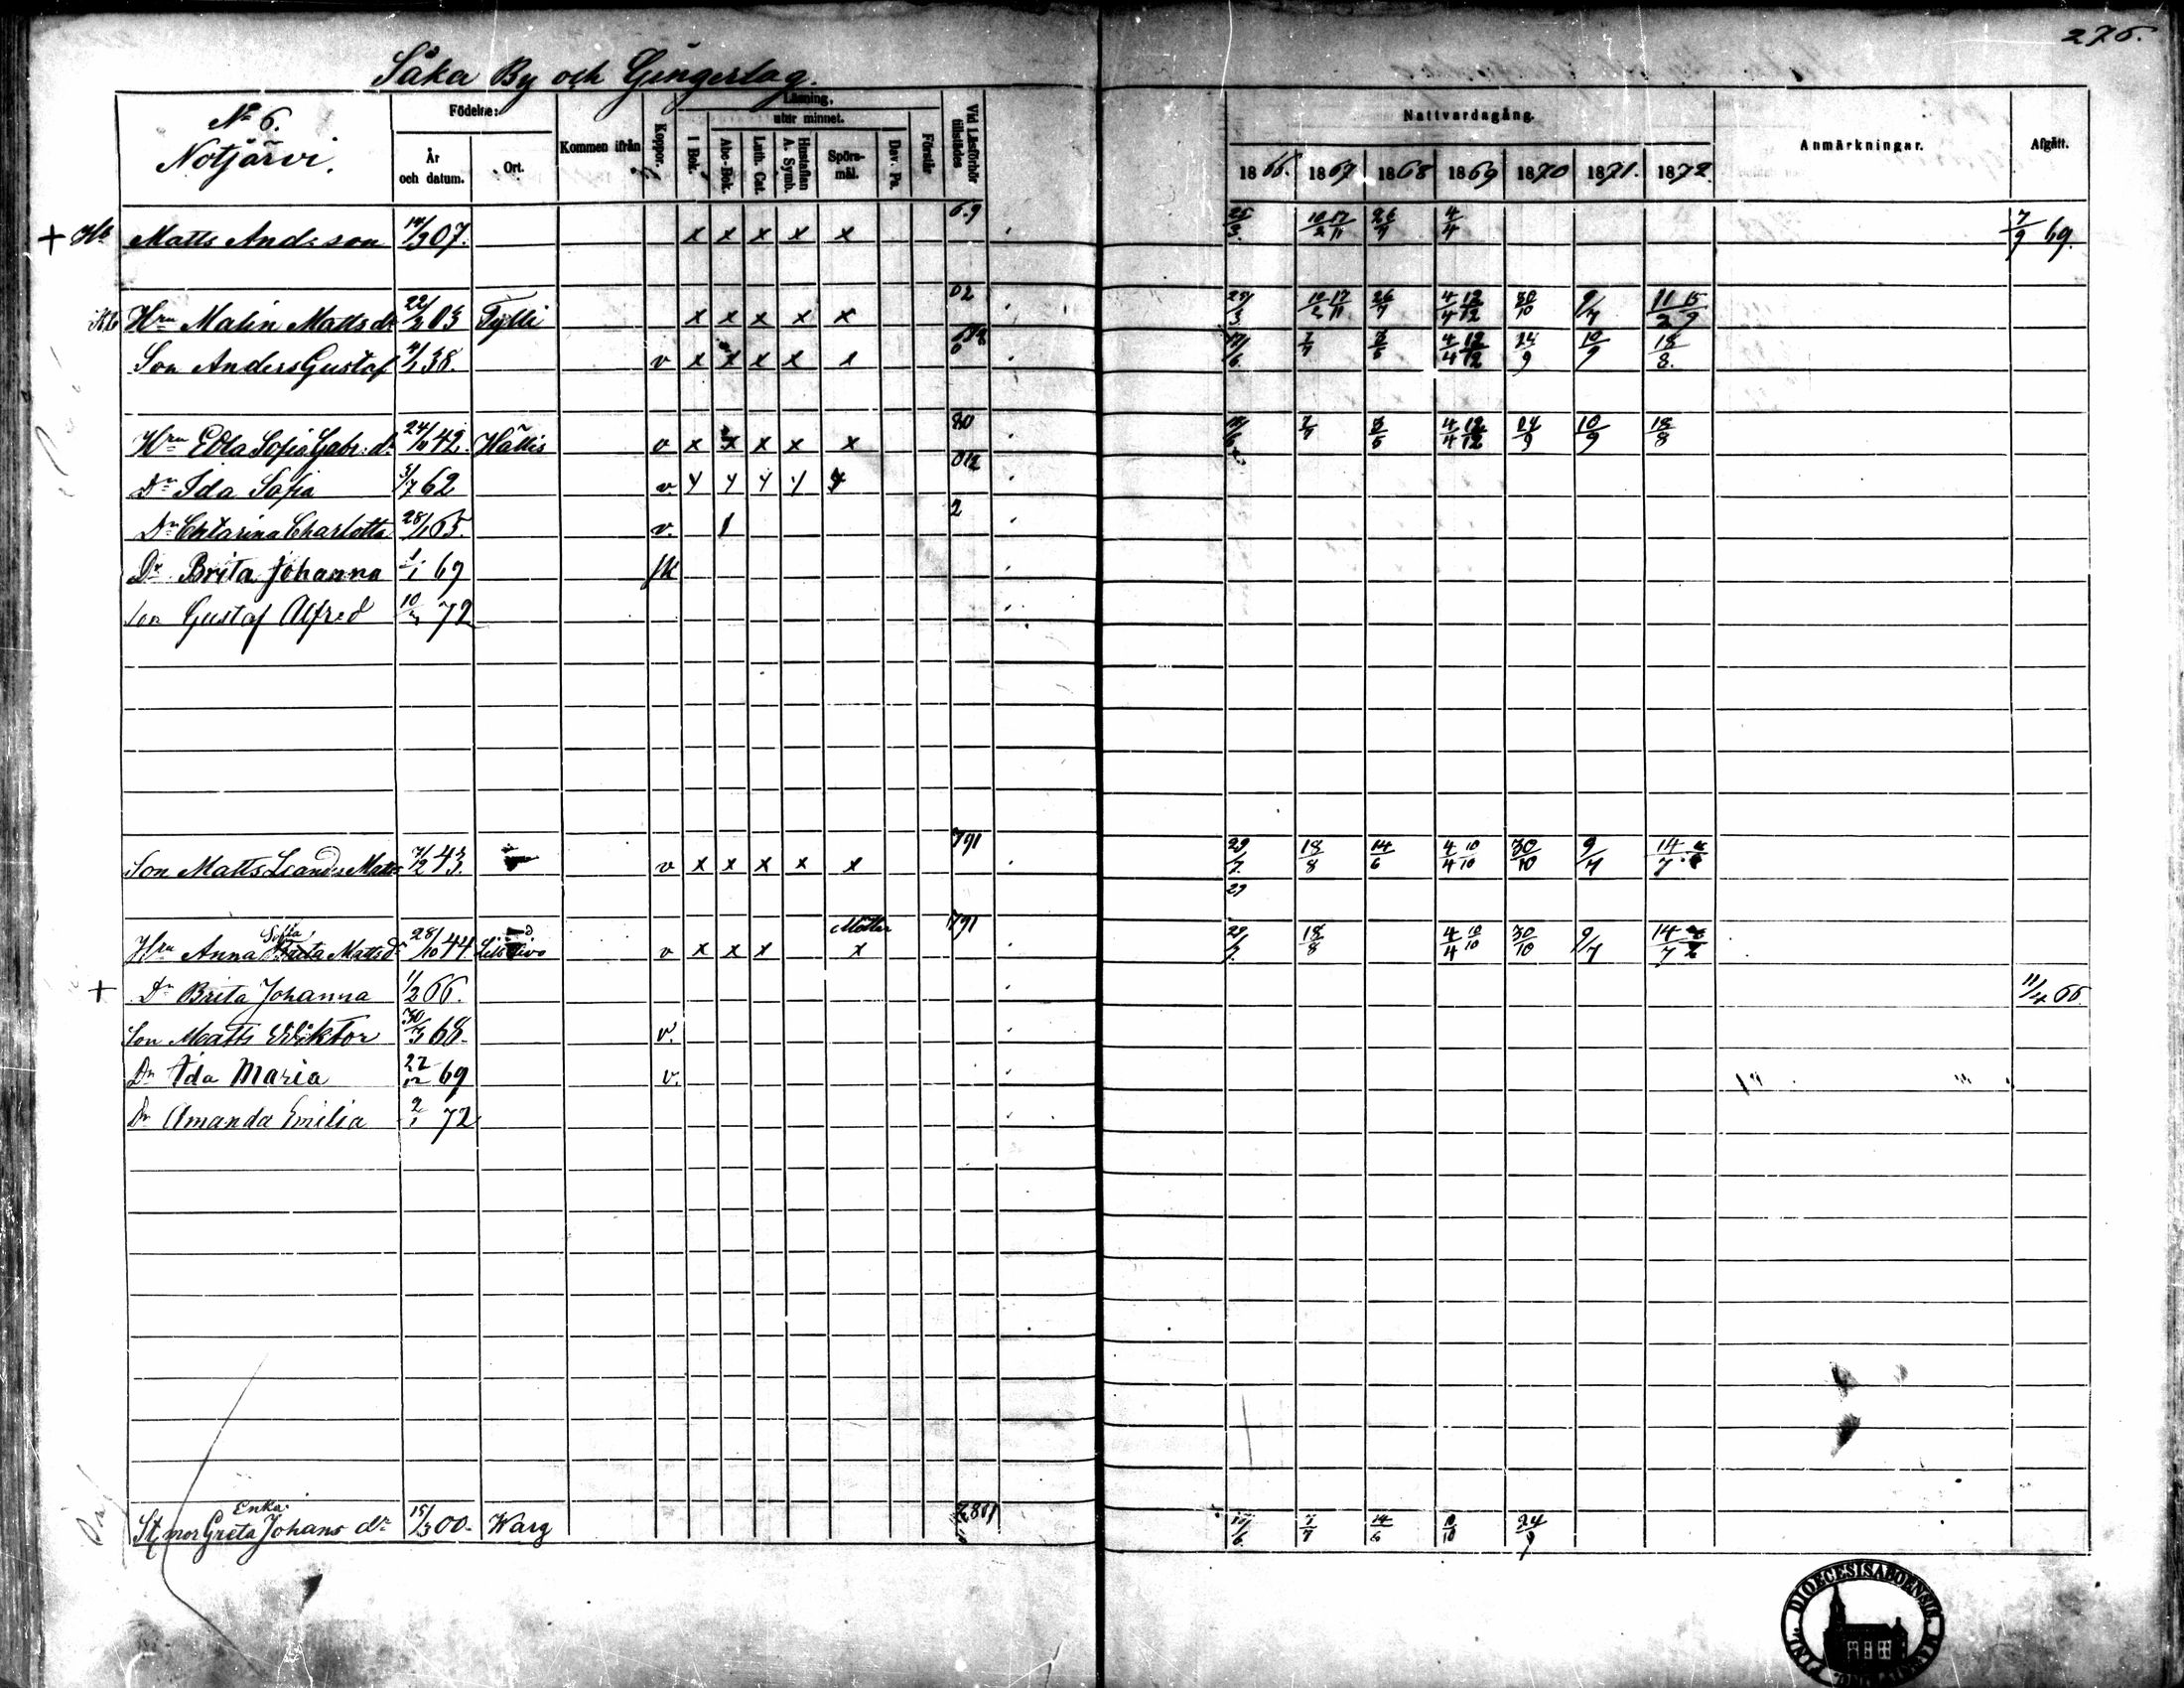 276.
Såka By och Gingerlag.
No 6.
Notjärvi.
Födelse:
År och datum.
Ort.
Kommen ifrån
Koppor.
Läsning,
I Bok.
utur minnet.
Abc-Bok.
Luth. Cat.
Hustaflan A. Symb.
Spörs-mål.
Dav. Ps.
Förstår
Vid Läsförhör tillstädes
Nattvardsgång.
1866. 1867 1868 1869 1870 1871. 1872.
Anmärkningar.
Afgått.
+ Matts Anderson 07. x x x x x 6.9 10/2 17/11 26/7 4/4 7/9 69.
Hru Malin Matts dr 22/3 03 Tylli x x x x x 02 25/3 10/2 17/11 26/7 4/4 12/12 30/10 9/7 11/2 15/9
Son Anders Gustaf 38. v x x x x x 17/6 7/7 4/4 12/12 24/9 10/9 18/8.
Hru Edla Sofia Gabr: dr 24/10 42. Hällis v x x x x x 80 7/7 4/4 12/12 24/9 10/9 18/8
Dr Ida Sofia 3/7 62 v 012
Dr Chtarina Charlotta 28/1 65. v. 2
Dr Brita Johanna 1/1 69
Son Gustaf Alfred 72
Son Matts Leander Matts 7/12 43. v x x x x x 791 29/7. 18/8 14/6 4/4 10/10 30/10 9/7 14/7
29
Hru Anna Sofia Matts dr 28/10 44. v x x x Möller x 791 29/7. 18/8 4/4 10/10 30/10 9/7 14/7
+ Dr Brita Johanna 11/2 66. 11/4 66
Son Matts Wiktor 30/3 68. v.
Dr Ida Maria 22/12 69 v.
Dr Amanda Emilia 72
Enka
St.mor Greta Johans dr 15/3 00. Warg 7/7 14/6 10/10 24/9
DIOECESIS ABOENSIS